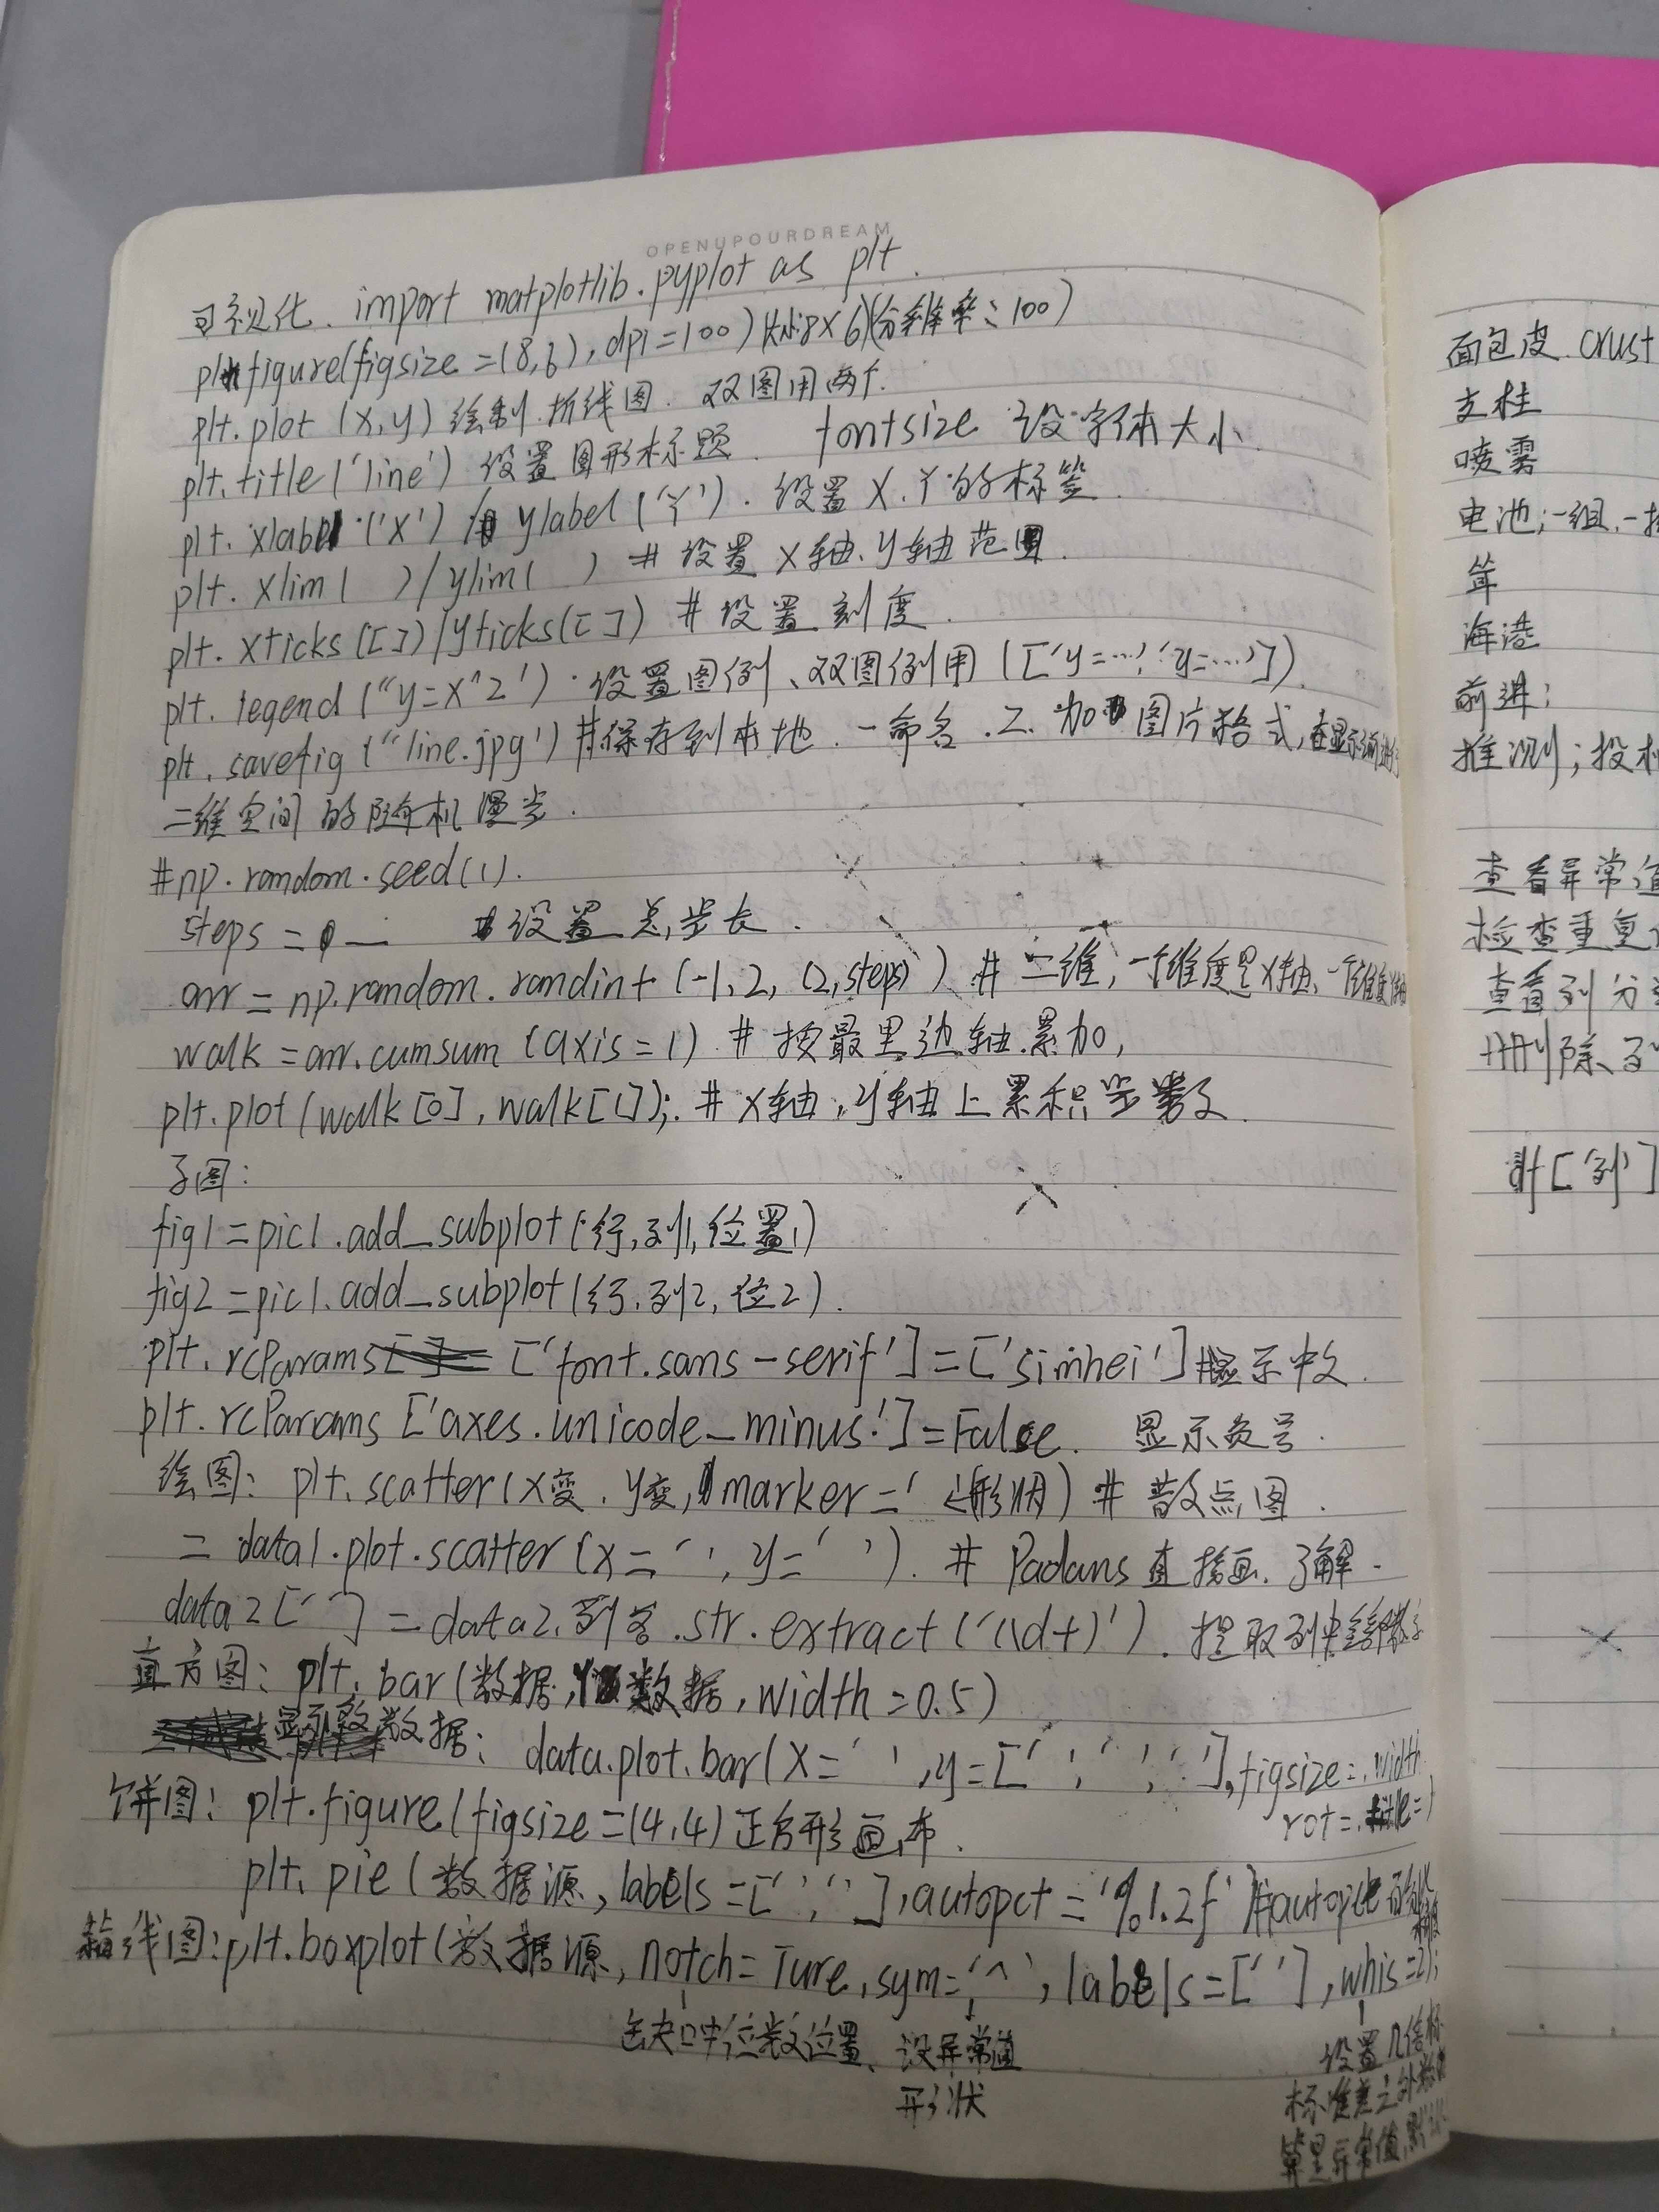 OPENUPOURDREAM
可视化. import matplotlib.pyplot as plt.
plt.figure(figsize=(8,6), dpi=100) (大小:8×6)(分辨率:100)
plt.plot (x,y) 绘制折线图. 双图用两个.
plt.title('line') 设置图形标题. fontsize 设字体大小.
plt. xlabel ('X') / ylabel ('Y'). 设置 X. Y 的标签.
plt. xlim( )/ylim( ) # 设置 X轴、y轴范围.
plt. xticks ([])/yticks([]) # 设置刻度.
plt. legend ("y=x^2'). 设置图例、双图例用 (['y=…','y=…']).
plt. savefig ("line.jpg') #保存到本地. 一命名. 2. 加图片格式,
二维空间的随机漫步.
#np.random.seed(1).
steps = # 设置总步长.
arr = np.random.randint (-1, 2, (2,steps)) # 二维, 一个维度是X轴、一个维度
walk = arr.cumsum (axis=1) # 按最里边轴累加,
plt.plot (walk[0], walk[1]); # X轴, y轴上累积步数.
子图:
fig1 = pic1.add_subplot(行,列1,位置1)
fig2 = pic1.add_subplot(行,列2, 位2).
plt. rcParams ['font.sans-serif']=['simhei'] #显示中文.
plt. rcParams ['axes.unicode_minus']=False. 显示负号.
绘图: plt. scatter(X变. y变, marker=' <形状) # 散点图.
= data1.plot.scatter (x=' ', y=' '). # Padans 直接画. 了解.
data2[' '] = data2.列名.str.extract ('(\d+)'). 提取列中
直方图: plt. bar(数据, 数据, width=0.5)
数据: data.plot.bar(x=' ', y=[' ', ' ', ' '], figsize=, width
rot=, title=)
饼图: plt.figure(figsize=(4,4) 正方形画布.
plt. pie (数据源, labels=[' ', ' '], autopct='%1.2f') #autopct
箱线图: plt.boxplot(数据源, notch=Ture, sym='^', labels=[' '], whis=2);
缺口中位数位置、设异常值
形状
设置几倍
标准差之外
算是异常值,
面包皮. crust
支柱
喷雾
电池;一组.一
海港
前进;
推测;投
查看异常值
检查重复
查看列分
删除列
df['列']